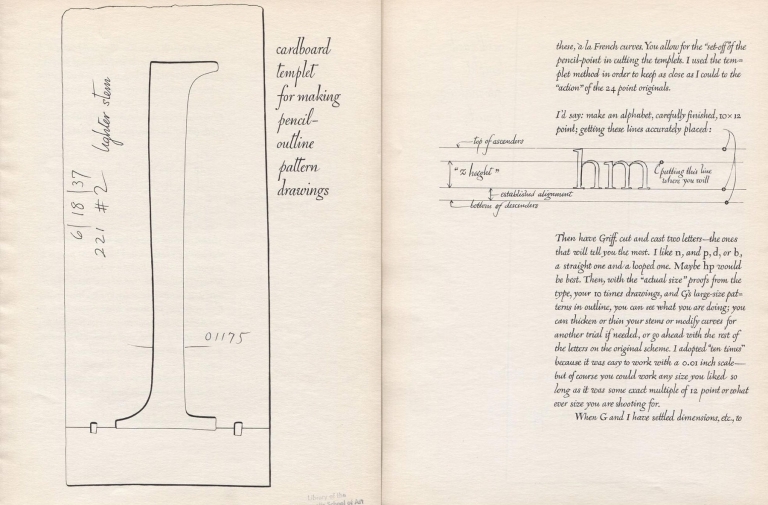 cardboard
templet
for making
pencil-
outline
pattern
drawings
6/18/37
221 #2 lighter stem
01175
these, 'a la French curves. You allow for the "set-off" of the
pencil-point in cutting the templets. I used the tem=
plet method in order to keep as close as I could to the
"action" of the 24 point originals.
I'd say: make an alphabet, carefully finished, 10 × 12
point; getting these lines accurately placed:
top of ascenders
"z height"
hm
putting this line
where you will
established alignment
bottom of descenders
Then have Griff. cut and cast two letters—the ones
that will tell you the most. I like n, and p, d, or b,
a straight one and a looped one. Maybe hp would
be best. Then, with the "actual size" proofs from the
type, your 10 times drawings, and G's large-size pat=
terns in outline, you can see what you are doing; you
can thicken or thin your stems or modify curves for
another trial if needed, or go ahead with the rest of
the letters on the original scheme. I adopted "ten times"
because it was easy to work with a 0.01 inch scale—
but of course you could work any size you liked so
long as it was some exact multiple of 12 point or what
ever size you are shooting for.
When G and I have settled dimensions, etc., to
Library of the
School of Art